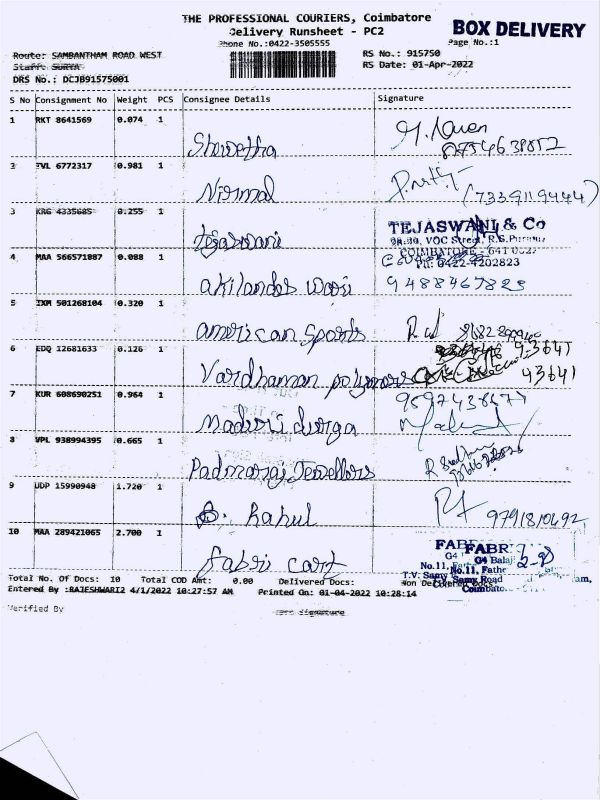 THE PROFESSIONAL COURIERS, Coimbatore
Delivery Runsheet - PC2
BOX DELIVERY
Phone No.:0422-3505555
Page No.:1
Route: SAMBANTHAM ROAD WEST
RS No.: 915750
Staff: SURYA
RS Date: 01-Apr-2022
DRS No.: DCJB91575001
S No Consignment No Weight PCS Consignee Details Signature
1 RKT 8641569 0.074 1
Shwetha
8754639852
2 TVL 6772317 0.981 1
Nirmal
(7339119444)
3 KRG 4335685 0.255 1
tejaswani
TEJASWANI & Co
VOC Street, R.S.Puram
COIMBATORE - 641 002
4 MAA 566571887 0.088 1
Ph: 0422-4202823
akilandes wari
9488467823
5 IXM 501268104 0.320 1
american sports
6 EDQ 12681633 0.126 1
93641
Vardhaman polymers
43641
7 KUR 608690251 0.964 1
Madhuri durga
8 VPL 938994395 0.665 1
Padmaraj Jewellers
9 UDP 15990948 1.720 1
B. Rahul
9791810692
10 MAA 289421065 2.700 1
Fabri cart
FABR
G4 Balaji
No.11, Fathr
T.V. Samy Road
Coimbato
Total No. Of Docs: 10 Total COD Amt: 0.00 Delivered Docs: Non Delivered Docs
Entered By :RAJESHWARI2 4/1/2022 10:27:57 AM Printed On: 01-04-2022 10:28:14
Verified By
Signature